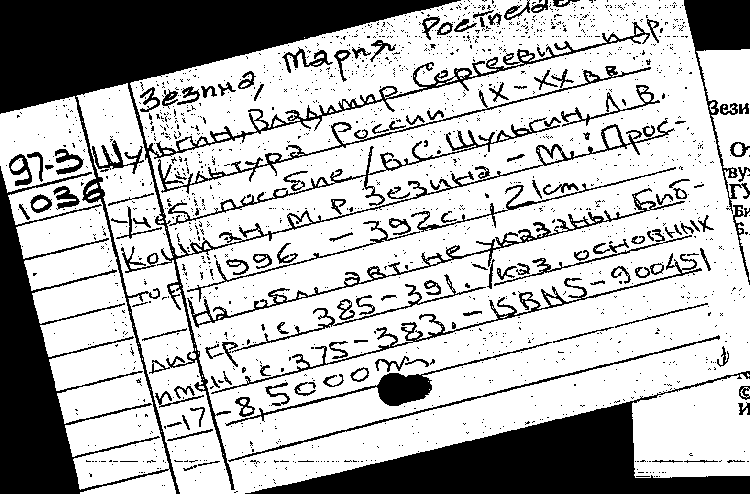 Зезина, Мария
97-3
1036
Шульгин, Владимир Сергеевич и др.
Культура России IX-XX вв.
Учеб. пособие / В.С. Шульгин, Л.В.
Кошман, М.Р. Зезина. - М.: Прос-
тор, 1996. - 392 с.; 21 см.
На обл. авт. не указаны. Биб-
лиогр.: с. 385-391. Указ. основных
имен: с. 375-383. - ISBN 5-900451
-17-8, 5000
Зези
©